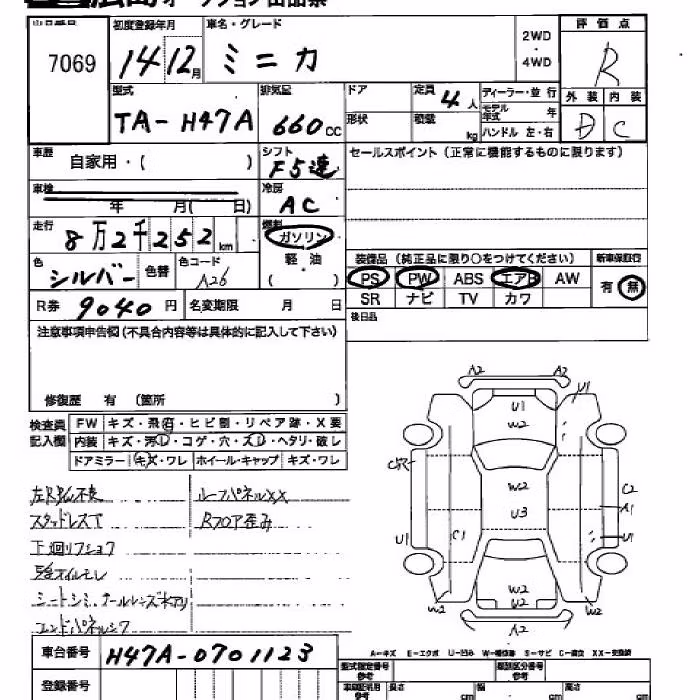 広島オークション出品票
出品番号 初度登録年月 車名・グレード 2WD・4WD 評価点
7069 14 12月 ミニカ R
型式 排気量 ドア 定員 4人 ディーラー・並行 外装 内装
TA-H47A 660cc 形状 積載 kg モデル年式 年 ハンドル 左・右 D C
車歴 自家用・( ) シフト F5速 セールスポイント(正常に機能するものに限ります)
車検 年 月( 日) 冷房 AC
走行 8万2千252km 燃料 ガソリン 軽油 ( )
装備品(純正品に限り○をつけてください) 新車保証行
色 シルバー 色替 色コード A26
PS PW ABS エアB AW 有 無
SR ナビ TV カワ
R券 9040円 名変期限 月 日
後日品
注意事項申告欄(不具合内容等は具体的に記入して下さい)
修復歴 有 (箇所 )
検査員記入欄
FW キズ・飛石・ヒビ割・リペア跡・X要
内装 キズ・汚レ・コゲ・穴・スレ・ヘタリ・破レ
ドアミラー キズ・ワレ ホイール・キャップ キズ・ワレ
ルーフパネルXX
スタッドレスT Rフロア歪み
エンドパネルシワ
車台番号 H47A-0701123
登録番号
A2 A2
U1 U1
W2
C2
W2
U3 A1
U1 C1 U1
W2
W2 W2 W2
A2
A-キズ E-エクボ U-凹み W-補修跡 S-サビ C-腐食 XX-交換済
型式指定番号 類別区分番号
長さ cm 幅 cm 高さ cm